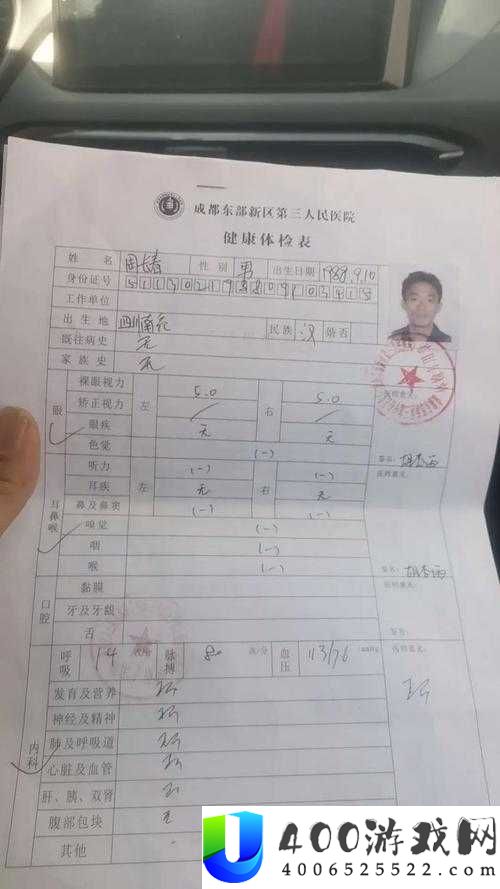 成都东部新区第三人民医院
健康体检表
姓名 周长春 性别 男 出生日期 1988.9.10
身份证号
工作单位
出生地 四川南充 民族 汉 婚否
既往病史 无
家族史 无
眼 裸眼视力 左 5.0 右 5.0 医师意见:
矫正视力 / /
眼疾 无 无
色觉 (-) 签名:
耳鼻喉 听力 左 (-) 右 (-) 医师意见:
耳疾 无 无
鼻及鼻窦 (-) (-)
嗅觉 (-)
咽 (-)
喉 (-) 签名:
口腔 黏膜 医师意见:
牙及牙龈
舌 签名:
内科 呼吸 14 次/分 脉搏 80 次/分 血压 113/76 mmHg 医师意见:
发育及营养
神经及精神
肺及呼吸道
心脏及血管
肝、胰、双肾
腹部包块 无
其他
400游戏网
4006525522.com